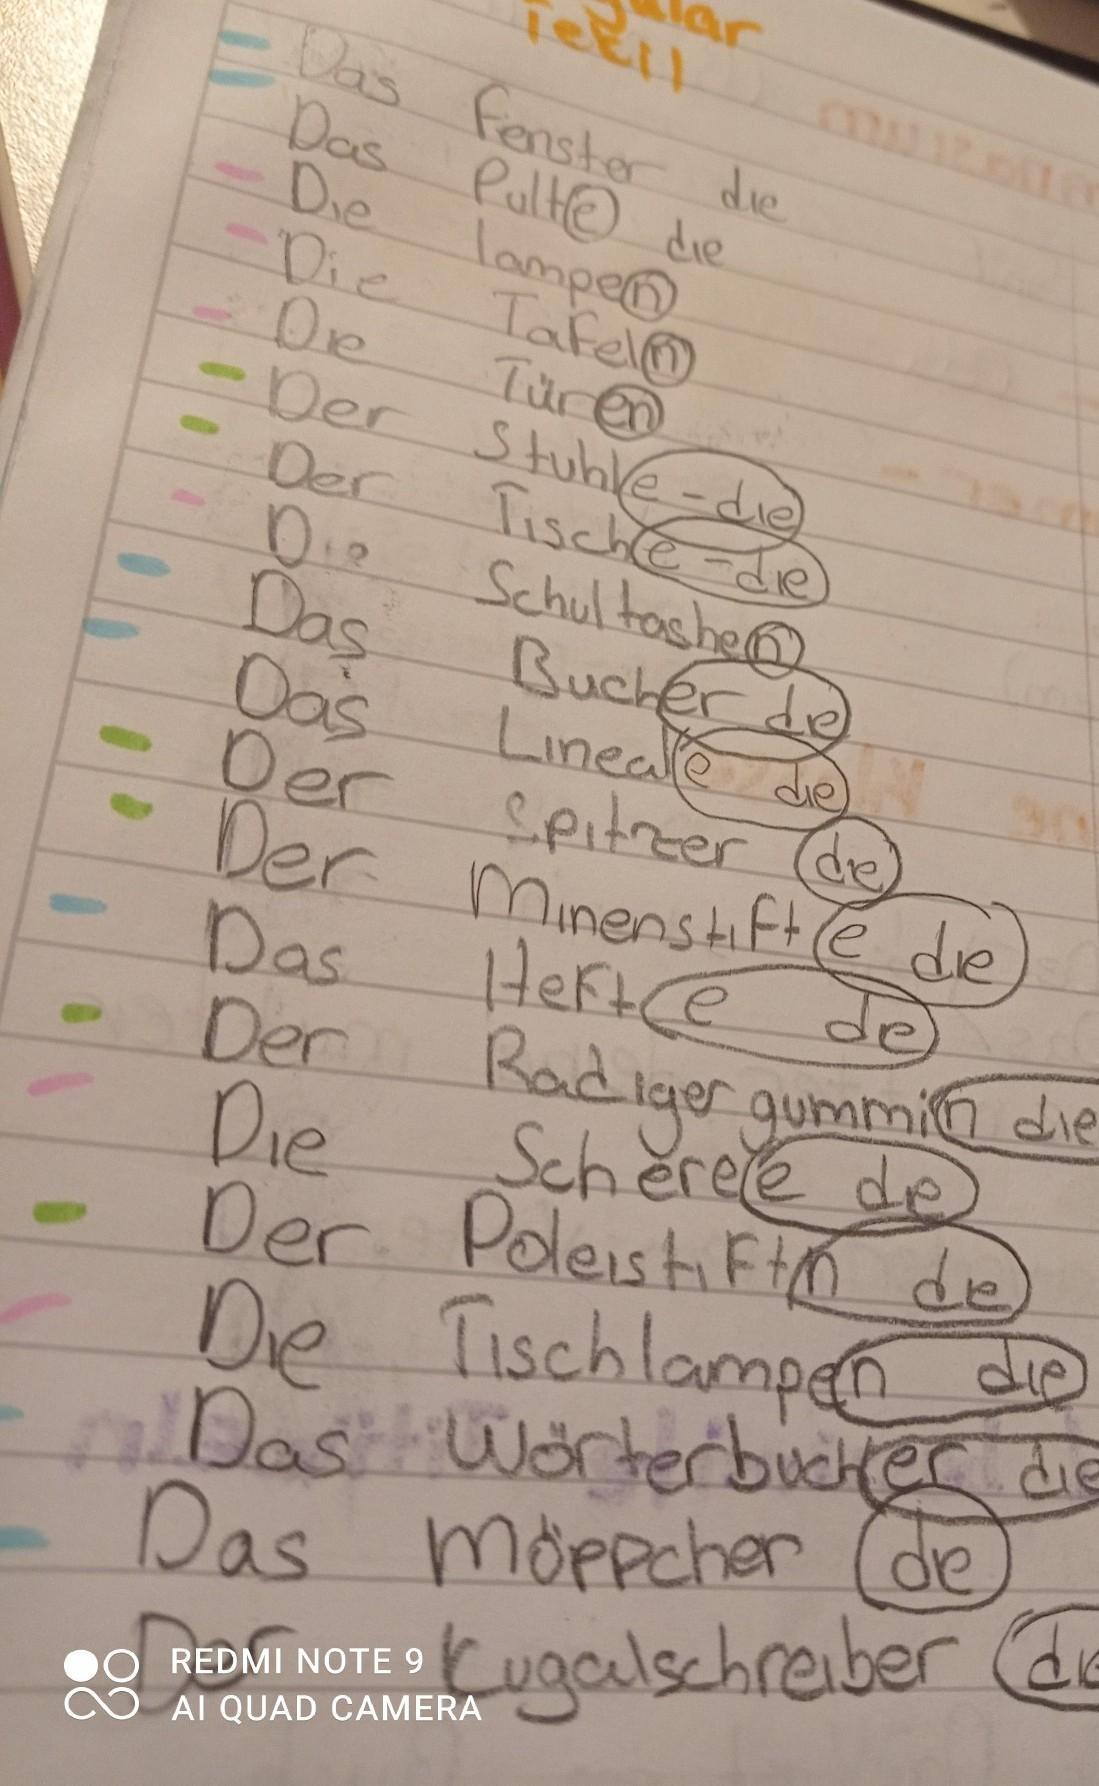 gular
Tekil
Das Fenster die
Das Pulte die
Die lampen
Die Tafeln
Die Türen
Der Stuhle-die
Der Tische-die
Die Schultashen
Das Bucher die
Das Lineale die
Der Spitzer die
Der Minenstifte die
Das Hefte die
Der Radigergummin die
Die Scherele die
Der Poleistiftn die
Die Tischlampen die
Das Wörterbucher die
Das möppcher die
Der Kugalschreiber die
REDMI NOTE 9
AI QUAD CAMERA